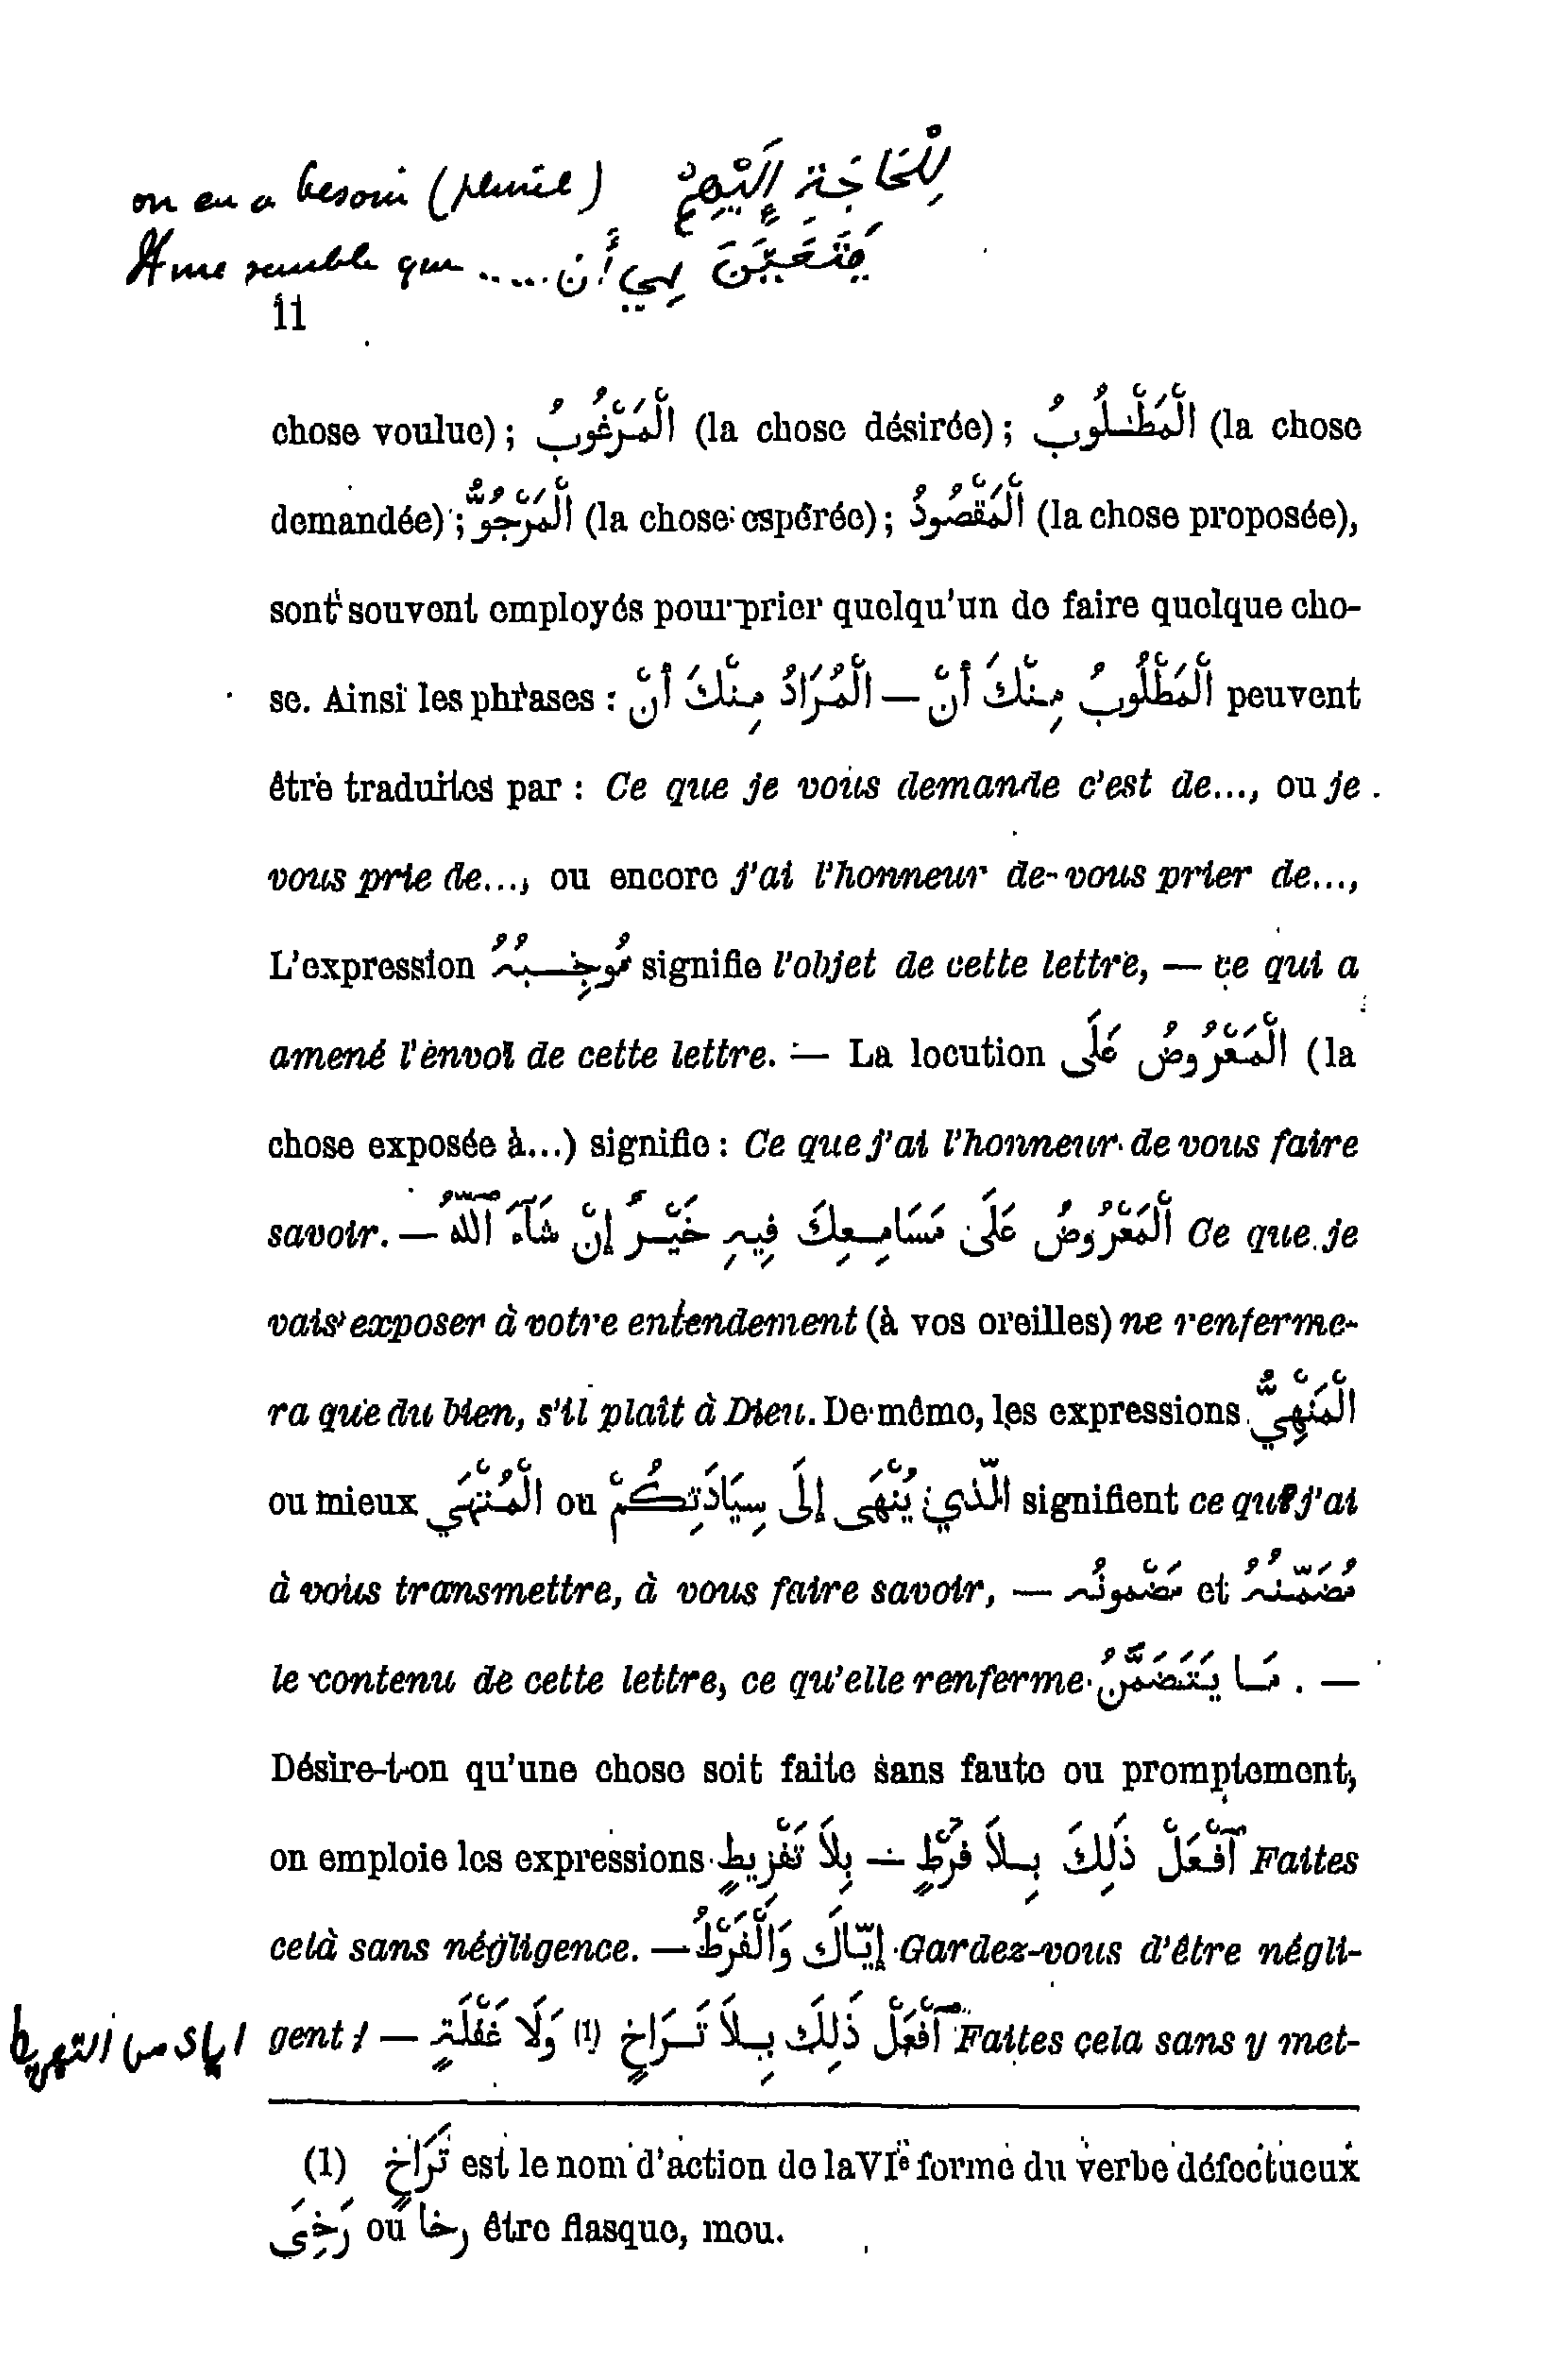 on en a besoin (pluriel) لِلْحَاجَةِ إِلَيْهِمْ
Il me semble que ..... يَتَعَيَّنَ لِي أَن
11
chose voulue) ; الْمَرْغُوبُ (la chose désirée) ; الْمَطْلُوبُ (la chose
demandée) ; الْمَرْجُوُّ (la chose espérée) ; الْمَقْصُودُ (la chose proposée),
sont souvent employés pour prier quelqu'un de faire quelque cho-
se. Ainsi les phrases : الْمَطْلُوبُ مِنْكَ أَنْ — الْمُرَادُ مِنْكَ أَنْ peuvent
être traduites par : Ce que je vous demande c'est de..., ou je
vous prie de..., ou encore j'ai l'honneur de vous prier de...,
L'expression مُوجِبُهُ signifie l'objet de cette lettre, — ce qui a
amené l'envoi de cette lettre. — La locution الْمَعْرُوضُ عَلَى (la
chose exposée à...) signifie : Ce que j'ai l'honneur de vous faire
savoir. — الْمَعْرُوضُ عَلَى مَسَامِعِكَ فِيهِ خَيْرٌ إِنْ شَآءَ ٱللّٰهُ Ce que je
vais exposer à votre entendement (à vos oreilles) ne renferme-
ra que du bien, s'il plaît à Dieu. De même, les expressions الْمَنْهِيُّ
ou mieux الْمُنْتَهَي ou الّذي يُنْهَى إِلَى سِيَادَتِكُمْ signifient ce que j'ai
à vous transmettre, à vous faire savoir, — مُضَمَّنُهُ et مَضْمونُه
le contenu de cette lettre, ce qu'elle renferme مَا يَتَضَمَّنُ . —
Désire-t-on qu'une chose soit faite sans faute ou promptement,
on emploie les expressions ٱفْعَلْ ذَلِكَ بِلَا فَرْطٍ — بِلَا تَفْرِيطٍ Faites
celà sans négligence. — إِيَّاكَ وَالْفَرْطُ Gardez-vous d'être négli-
gent ! — ٱفْعَلْ ذَلِكَ بِلَا تَرَاخٍ (1) وَلَا غَفْلَةٍ Faites cela sans y met-
اياك من التفريط
(1) تَرَاخٍ est le nom d'action de la VIe forme du verbe défectueux
رَخِىَ ou رخا être flasque, mou.